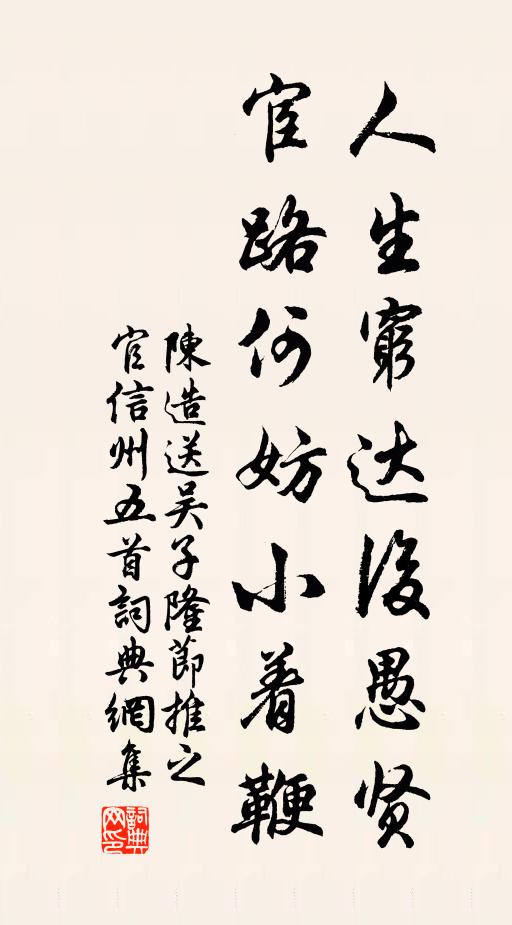 人生窮达後愚贤
宦路何妨小着鞭
陳造送吴子隆節推之
官信州五首詞典網集
詞典网印